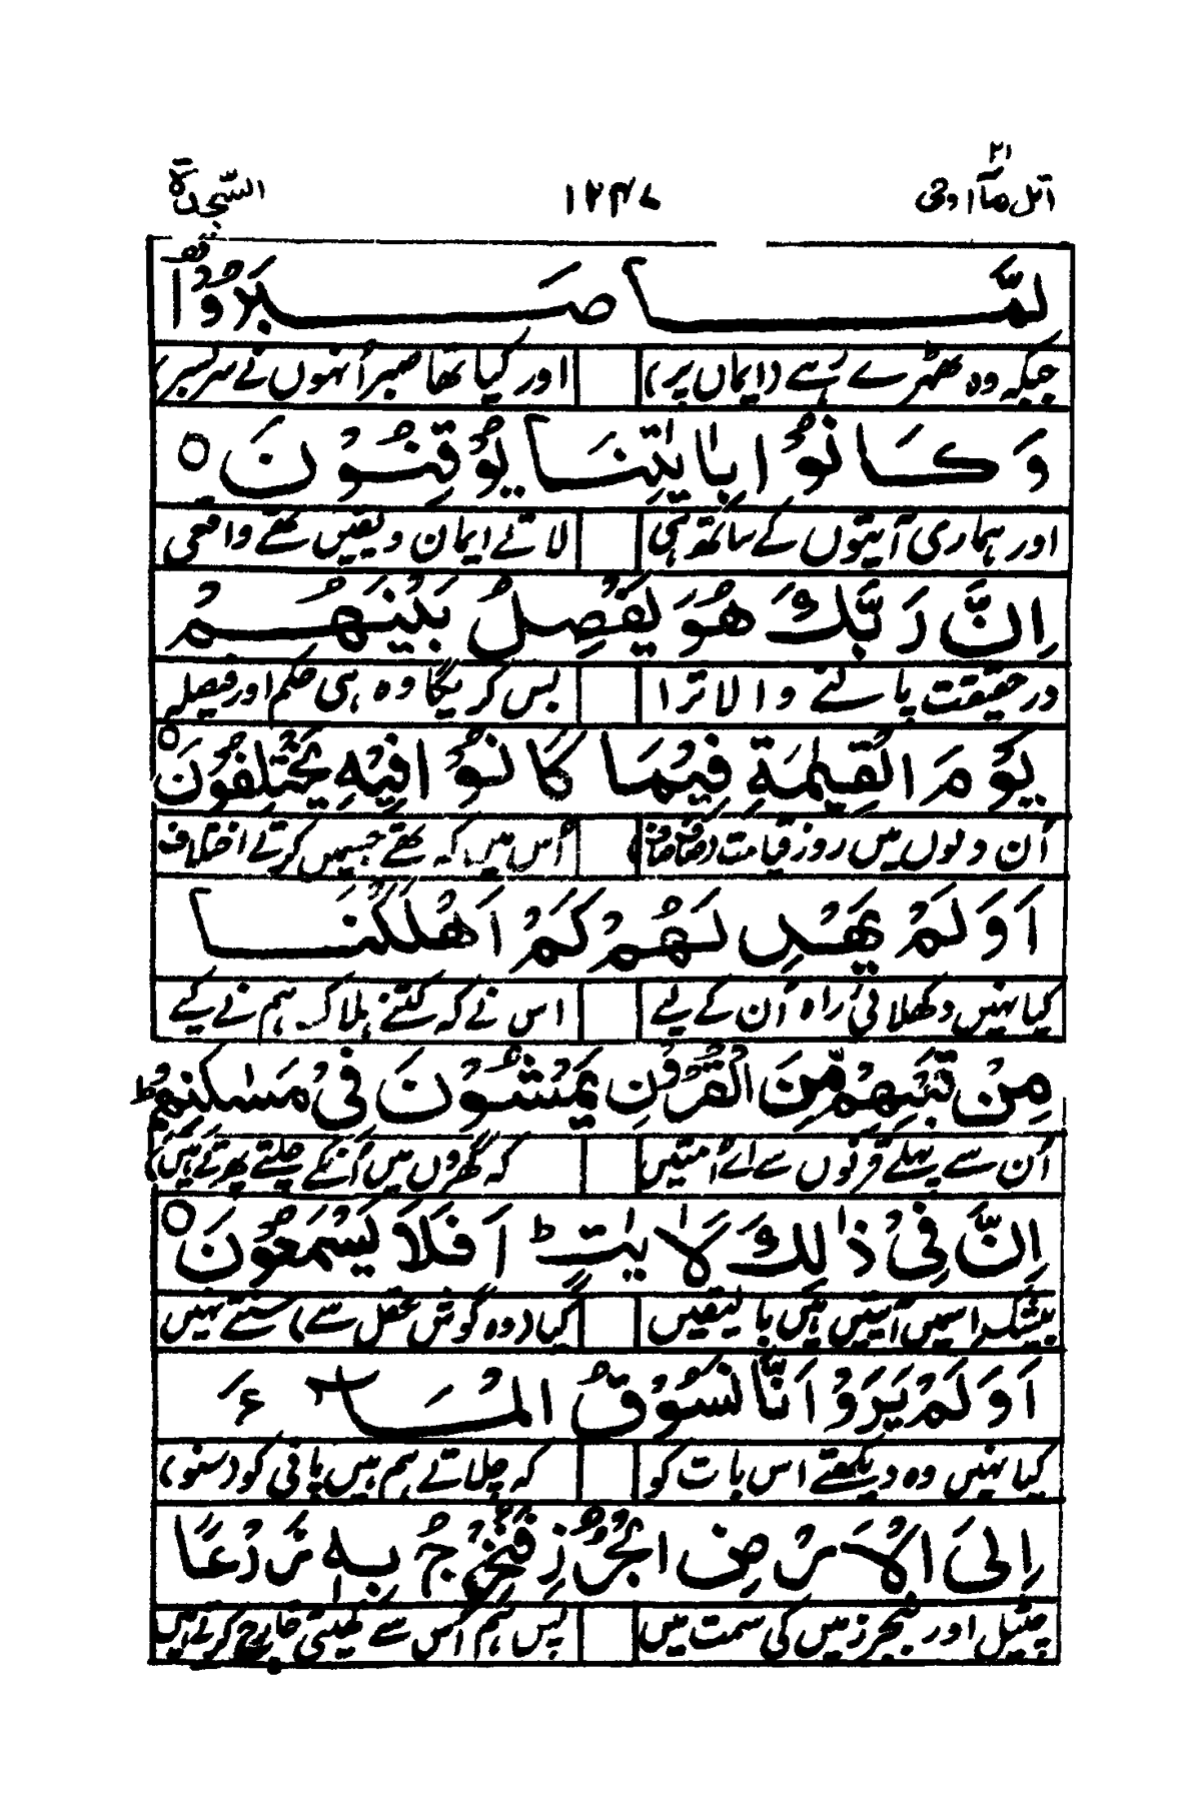 اتل مآ اوحی ۲۱ ۱۲۴۷ السّجدة
لَمَّا صَبَرُوْا ۫ؕ
جبکہ وہ ٹھہرے رہے (ایماں پر) اور کیا تھا صبر اُنہوں نے سربسر
وَكَانُوْا بِاٰيٰتِنَا يُوْقِنُوْنَ ○
اور ہماری آیتوں کے ساتھ ہی لاتے ایمان و یقیں تھے واقعی
اِنَّ رَبَّكَ هُوَ يَفْصِلُ بَيْنَهُمْ
درحقیقت پالنے والا ترا بس کریگا وہ ہی حکم اور فیصلہ
يَوْمَ الْقِيٰمَةِ فِيْمَا كَانُوْا فِيْهِ يَخْتَلِفُوْنَ ○
اُن دنوں میں روز قیامت (صاف صاف) اُس میں کہ تھے جسمیں کرتے اختلاف
اَوَلَمْ يَهْدِ لَهُمْ كَمْ اَهْلَكْنَا
کیا نہیں دکھلائی راہ اُن کے لیے اس نے کہ کتنے ہلاک ہم نے کیے
مِنْ قَبْلِهِمْ مِّنَ الْقُرُوْنِ يَمْشُوْنَ فِيْ مَسٰكِنِهِمْ ؕ
اُن سے پہلے قرنوں سے اے اُمتیں کہ گھروں میں اُنکے چلتے پھرتے ہیں
اِنَّ فِيْ ذٰلِكَ لَاٰيٰتٍ ؕ اَفَلَا يَسْمَعُوْنَ ○
بیشک اسمیں آیتیں ہیں بالیقیں کیا (وہ گوش عقل سے) سنتے نہیں
اَوَلَمْ يَرَوْا اَنَّا نَسُوْقُ الْمَآءَ
کیا نہیں وہ دیکھتے اس بات کو کہ چلاتے ہم ہیں پانی کو (سنو)
اِلَى الْاَرْضِ الْجُرُزِ فَنُخْرِجُ بِهٖ زَرْعًا
چٹیل اور بنجر زمیں کی سمت میں پس ہم اُس سے کھیتی خارج کرتے ہیں